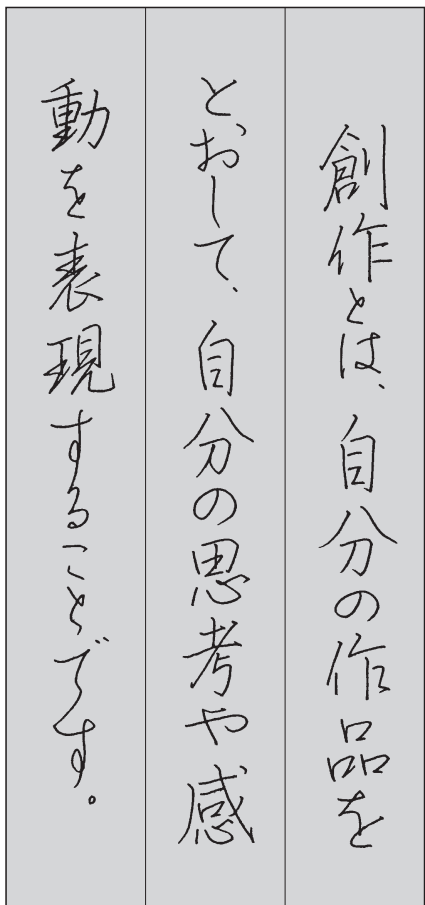 創作とは、自分の作品を
とおして、自分の思考や感
動を表現することです。